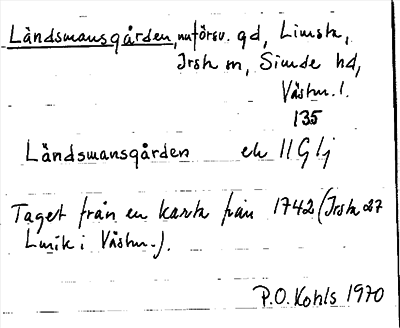 Ländsmansgården, nuförsv. gd, Limsta,
Irsta sn, Siende hd,
Västm. l.
135
Ländsmansgården ek 11G lj
Taget från en karta från 1742 (Irsta 27
Lmfk i Västm.).
P.O. Kohls 1970